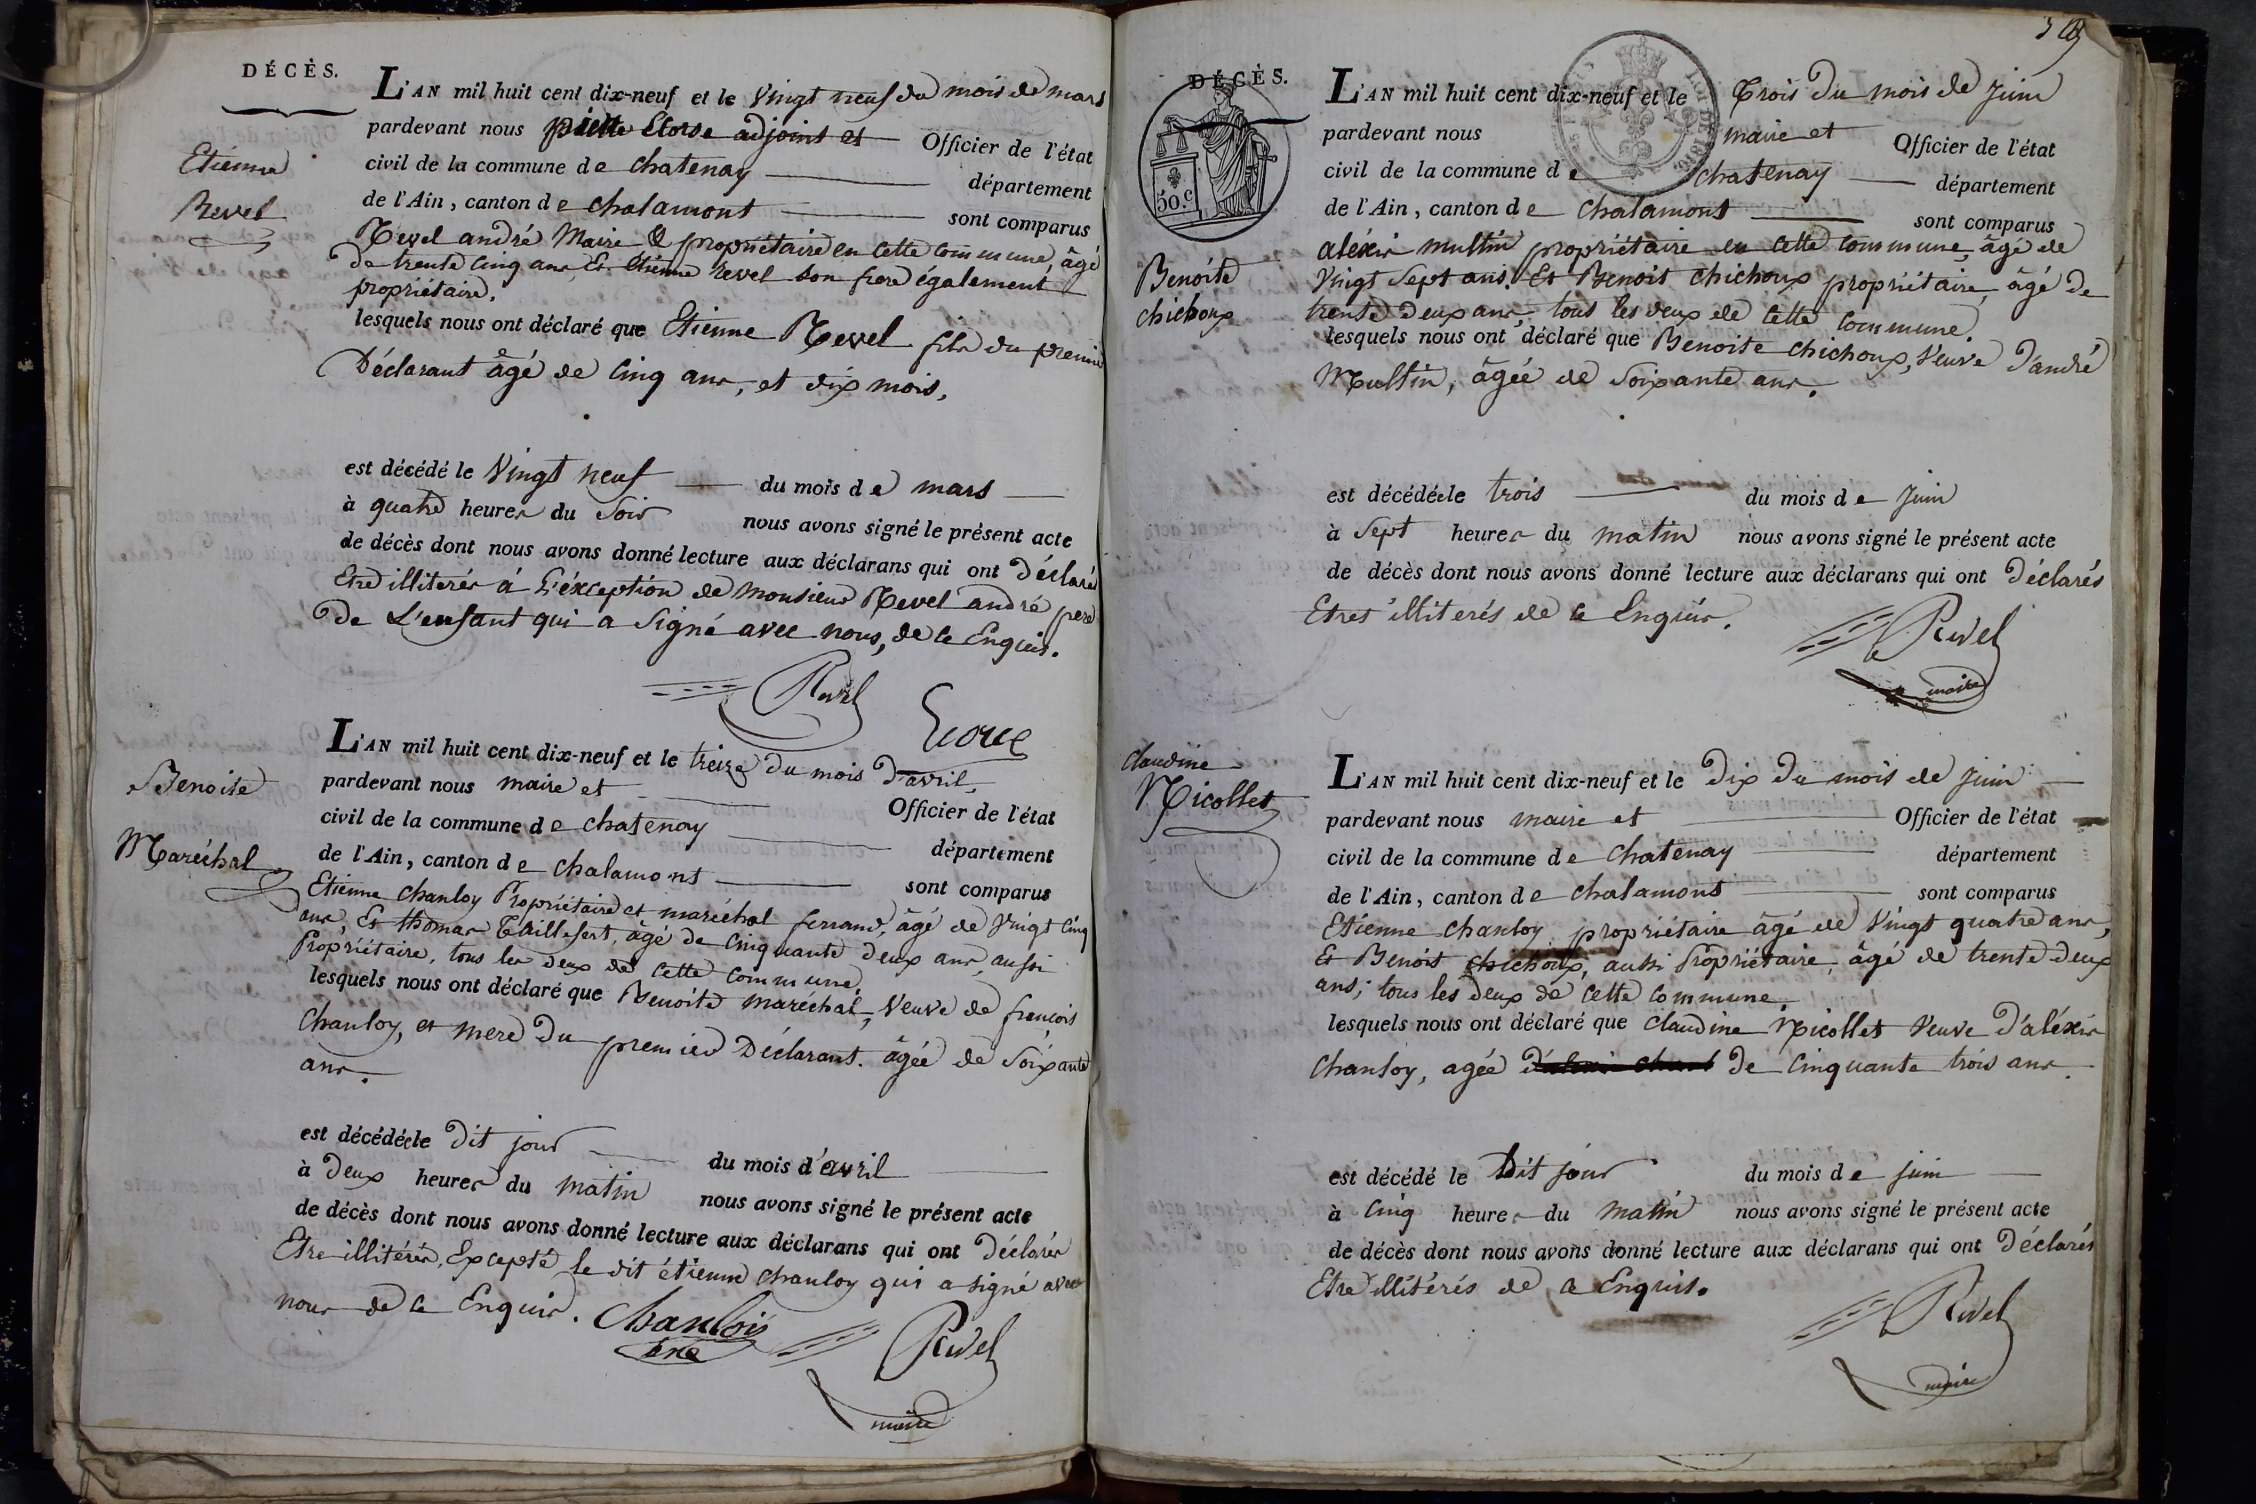 DÉCÈS.
Etienne
Revel
L'AN mil huit cent dix-neuf et le Vingt neuf du mois de mars
pardevant nous adjoint et Officier de l'état
civil de la commune de chatenay département
de l'Ain, canton de chalamont sont comparus
Revel andré Maire & propriétaire en cette commune, âgé
de trente cinq ans, Et etienne revel son frere également
propriétaire.
lesquels nous ont déclaré que Etienne Revel fils du premier
Déclarant âgé de Cinq ans, et dix mois,
est décédé le Vingt neuf du mois de mars
à quatre heures du Soir nous avons signé le présent acte
de décès dont nous avons donné lecture aux déclarans qui ont déclaré
Etre illiterés à L'éxception de monsieur Revel andré pere
de L'enfant qui a Signé avec nous, de ce Enquis.
Revel
Benoite
Maréchal
L'AN mil huit cent dix-neuf et le treize du mois d'avril,
pardevant nous maire et Officier de l'état
civil de la commune de chatenay département
de l'Ain, canton de chalamont sont comparus
Etienne chanloy Propriétaire et maréchal ferrand, âgé de Vingt Cinq
ans, Et thomas taillefert, agé de Cinquante deux ans, aussi
Propriétaire, tous les deux de cette commune.
lesquels nous ont déclaré que Benoite maréchal, Veuve de françois
Chanloy, et mere du premier Déclarant. âgée de Soixante
ans.
est décédée le dit jour du mois d'avril
à Deux heures du matin nous avons signé le présent acte
de décès dont nous avons donné lecture aux déclarans qui ont Déclarés
Etre illitérés, Excepté le dit étienne chanloy qui a signé avec
nous de ce Enquis. Chanloy
Revel
maire
DÉCÈS.
50.c
Benoite
chichoux
L'AN mil huit cent dix-neuf et le Trois du mois de Juin
pardevant nous maire et Officier de l'état
civil de la commune de chatenay département
de l'Ain, canton de chalamont sont comparus
aléxis multin propriétaire en cette commune, âgé de
Vingt Sept ans. Et Benoit chichoux propriétaire, âgé de
trente deux ans, tous les deux de cette commune.
lesquels nous ont déclaré que Benoite chichoux, Veuve d'andré
Multin, âgée de Soixante ans.
est décédée le trois du mois de Juin
à Sept heures du matin nous avons signé le présent acte
de décès dont nous avons donné lecture aux déclarans qui ont déclarés
Etres illiterés de ce Enquis.
Revel
maire
claudine
Nicollet
L'AN mil huit cent dix-neuf et le Dix du mois de juin
pardevant nous maire et Officier de l'état
civil de la commune de chatenay département
de l'Ain, canton de chalamont sont comparus
Etienne chanloy propriétaire âgé de Vingt quatre ans,
Et Benoit chichoux, aussi Propriétaire, âgé de trente deux
ans; tous les deux de cette commune.
lesquels nous ont déclaré que claudine Nicollet Veuve d'aléxis
chanloy, agée de Cinquante trois ans.
est décédé le Dit jour du mois de juin
à Cinq heures du matin nous avons signé le présent acte
de décès dont nous avons donné lecture aux déclarans qui ont Déclarés
Etre illitérés de ce Enquis.
Revel
maire